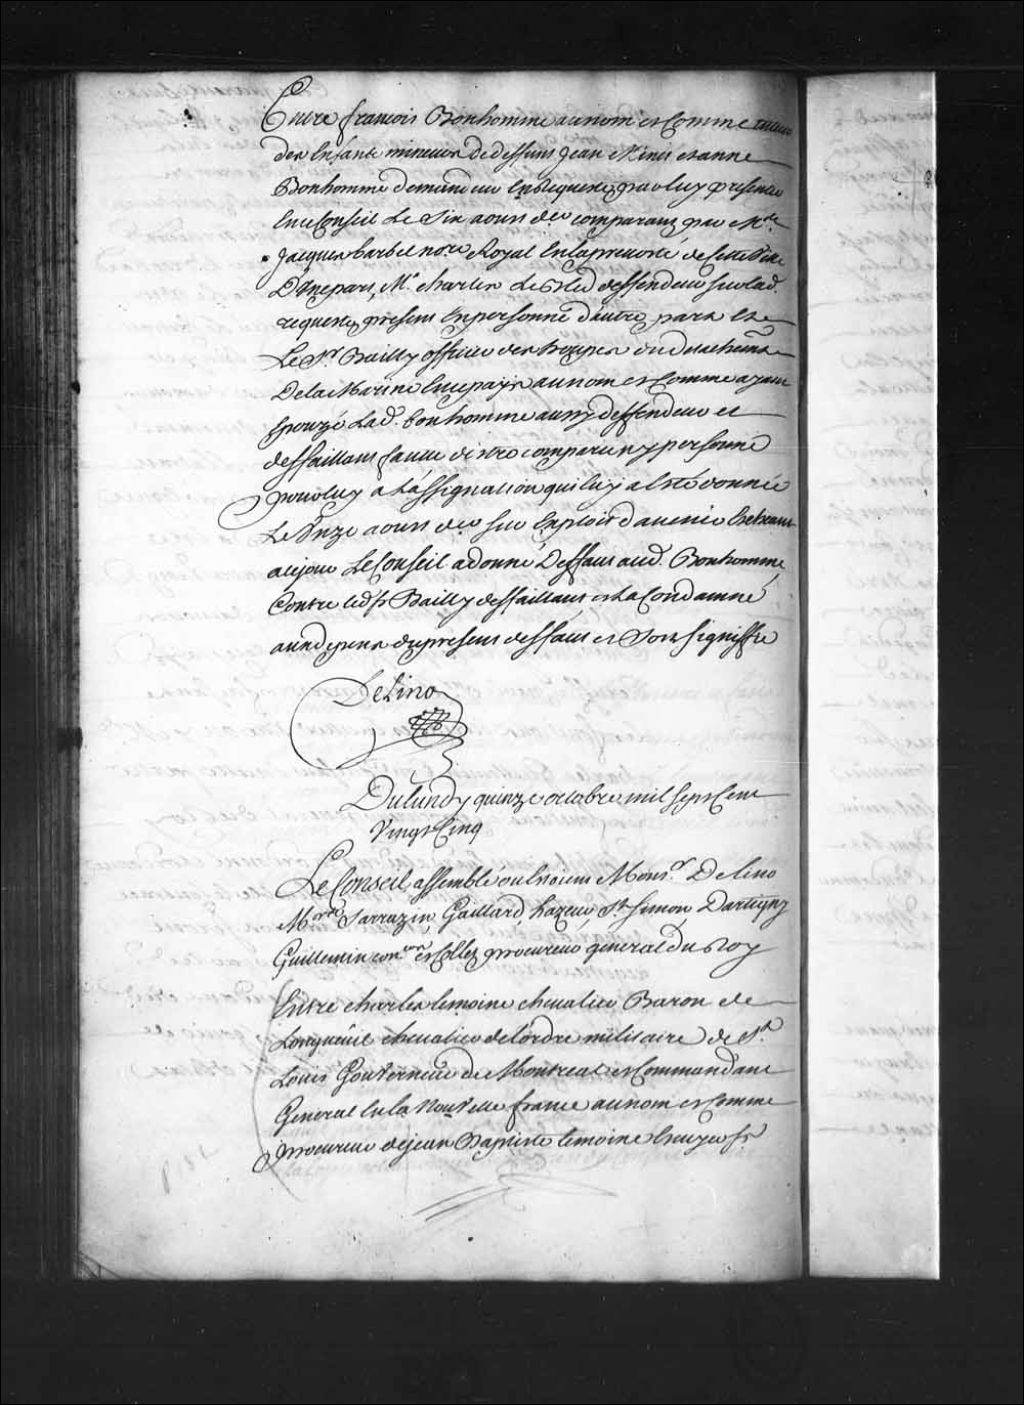 Entre françois Bonhomme au nom et Comme tuteur
des Enfants mineurs de deffunt Jean Minet et anne
Bonhomme demandeur En Requeste par luy presentée
En ce Conseil Le Six aoust der comparant par Me
Jacques barbel nore Royal En la prevosté de Cette Ville
D'Une part, Me charles deffendeur sur lad.
requeste, present En personne d'autre part Et
Le Sr Bailly officier des troupes du detachemt
De la Marine En ce païs au nom et Comme ayant
Epouzé Lad. bonhomme aussy deffendeur et
deffaillant faute d'estre comparu ny personne
pour luy a L'assignation qui luy a Esté donnée
Le Onze aoust der sur Exploit d'avenir Echeant
a cejour Le Conseil a donné Deffaut aud. Bonhomme
Contre led sr Bailly deffaillant et L'a Condamné
aux depens du present deffaut et Soit signiffié
Delino
Du lundy quinze octobre mil Sept Cent
Vingt Cinq
Le Conseil assemblé ou Estoient Monsr Delino
Mrs Sarrazin, Gaillard, hazeur, St Simon Dartigny
Guillemin coners et Collet procureur general du Roy
Entre charles lemoine chevalier Baron de
Longueüil chevalier de l'ordre militaire de St
Louis Gouverneur de Montreal et Commandant
General En la Nouvelle france au nom et Comme
procureur de jean Baptiste lemoine Ecuyer sr